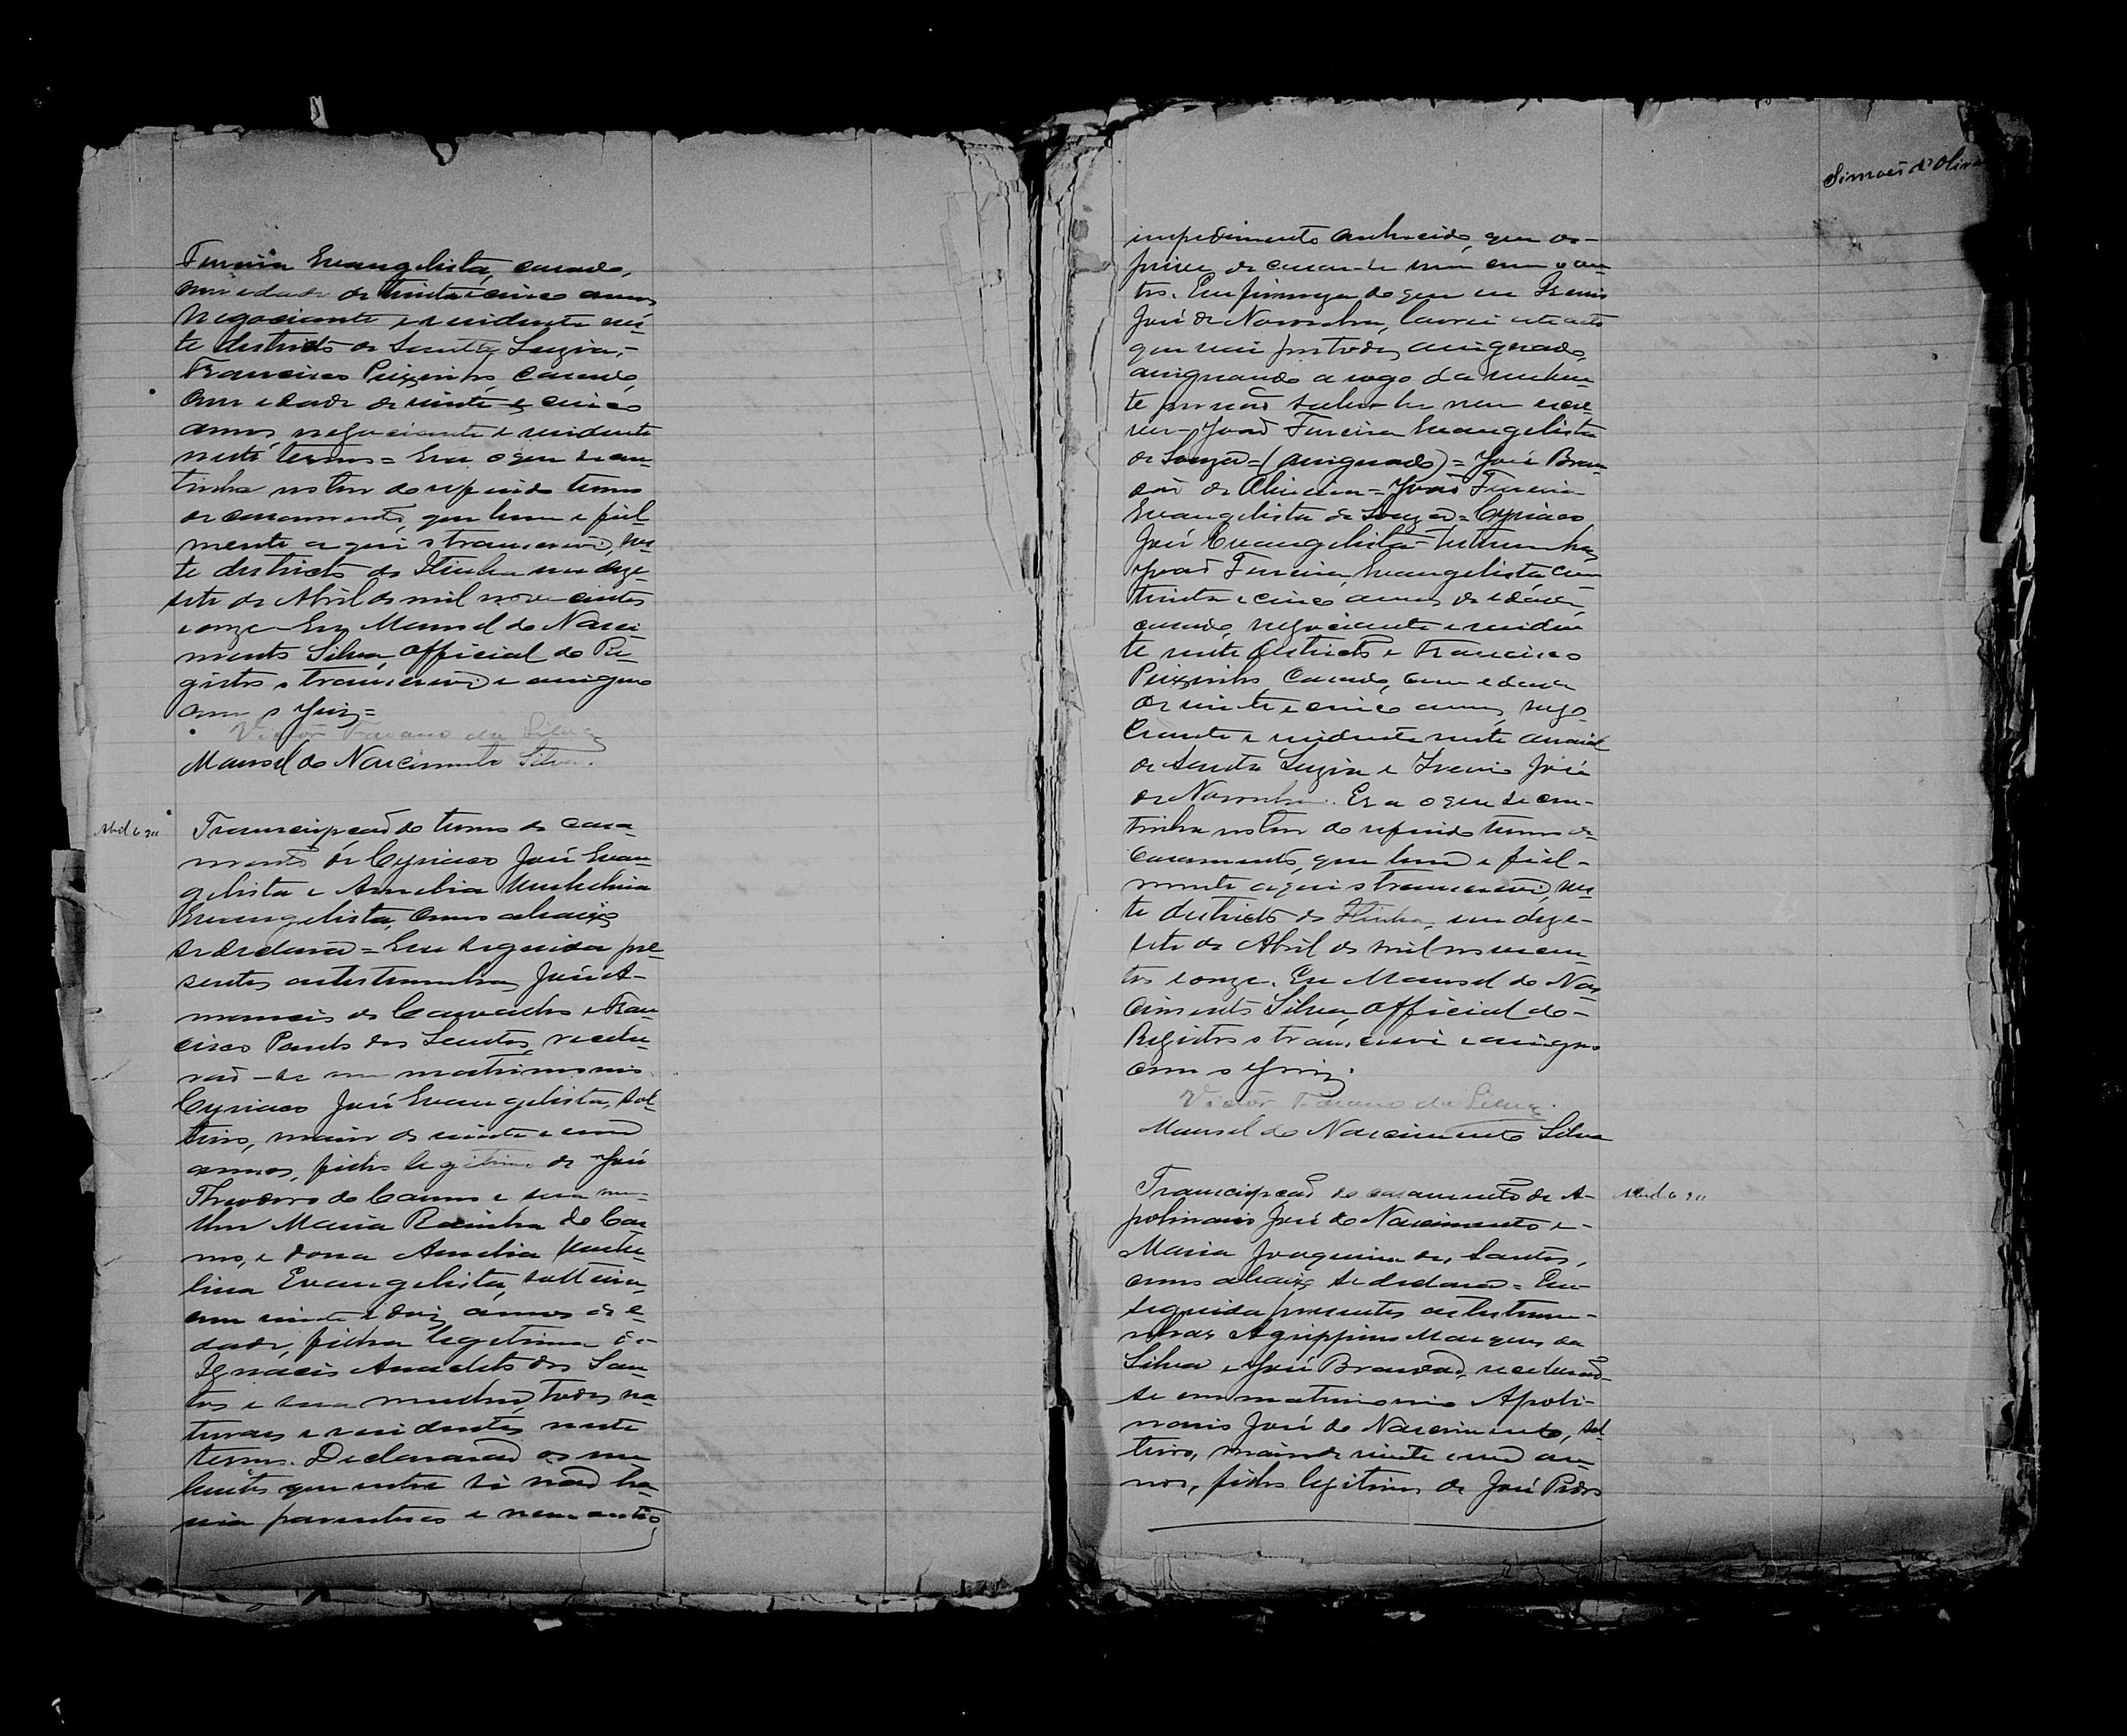 Ferreira Evangelista, casado,
com idade de trinta e cinco annos
negociante e residente nes-
te districto de Santa Luzia,-
Francisco Peixinho, casado,
com idade de vinte e cinco
annos, negociante e residente
neste termo = Era o que se con-
tinha no teor do referido termo
de casamento, que bem e fiel-
mente aqui o transcrevi, nes-
te districto do em deze-
sete de Abril de mil nove centos
e onze Eu Manoel do Nasci-
mento Silva, Official do Re-
gistro o transcrevi e assigno
com o Juiz=
Victor da Silva
Manoel do Nascimento Silva.
Abril 6 911
Transcripção do termo de casa-
mento de Cyriaco José Evan-
gelista e Amelia Umbelina
Evangelista, como abaixo
se declara = Em seguida pre-
sentes as testemunhas José A-
mancio de Carvalho e Fran-
cisco dos Santos, recebe-
rão-se em matrimonio
Cyriaco José Evangelista, sol-
teiro, maior de vinte e um
annos, filho legitimo de José
Theodoro do Carmo e sua mu-
lher Maria Rainha do Car-
mo, e dona Amelia Umbe-
lina Evangelista, solteira,
com vinte e dois annos de e-
dade, filha legitima de-
Ignacio Anacleto dos San-
tos e sua mulher, todos na-
turaes e residentes neste
termo. Declararão os nu-
bentes que entre si não ha-
via parentesco e nem outro
Simões d'Oliv
impedimento conhecido, que os-
de casar-se um com o ou-
tro. Em firmeza do que eu Irenio
José de Noronha, lavrei este acto
que vai por todos assignado,
assignando a rogo da nuben-
te por não saber ler nem escre-
ver- João Ferreira Evangelista
de Souza=(assignado)= José Bran-
dão de Oliveira= João Ferreira
Evangelista de Souza= Cyriaco
José Evangelista- Testemunhas
João Ferreira Evangelista, com
trinta e cinco annos de edade,
casado, negociante e residen-
te neste districto e Francisco
Peixinho casado, com edade
de vinte e cinco annos, nego-
ciante e residente neste arraial
de Santa Luzia e Irenio José
de Noronha. Era o que se con-
tinha no teor do referido termo de
casamento, que bem e fiel-
mente aqui o transcrevi, nes-
te districto do em deze-
sete de Abril de mil novecen-
tos e onze. Eu Manoel do Nas-
cimento Silva, Official do-
Registro o transcrevi e assigno
com o Juiz.
Victor da Silva.
Manoel do Nascimento Silva
Abril 6 911
Transcripção do casamento de A-
polinario José do Nascimento e-
Maria Joaquina dos Santos,
como abaixo se declara = Em
seguida presentes as testemu-
nhas Agrippino Marques da
Silva e José Brandão, receberão-
se em matrimonio Apoli-
nario José do Nascimento, sol-
teiro, maior de vinte e um an-
nos, filho legitimo de José Pedro